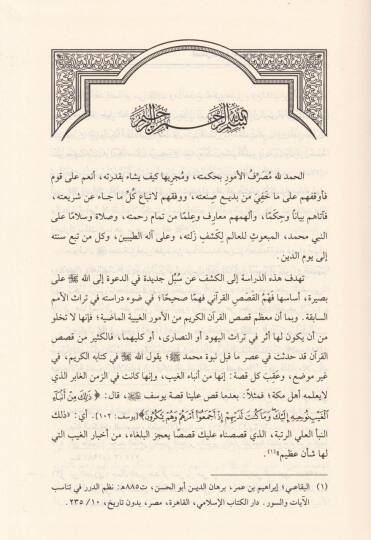 بسم الله الرحمن الرحيم
الحمد لله مُصَرِّفُ الأمورِ بحكمته، ومُجرِيها كيف يشاء بقدرته، أنعم على قوم
فأوقفهم على ما خَفِيَ من بديع صنعته، ووفقهم لاتباع كُلِّ ما جاء عن شريعته،
فآتاهم بياناً وحِكَمًا، وألهمهم معارف وعِلمًا من تمام رحمته، وصلاة وسلامًا على
النبي محمد، المبعوثِ للعالم لِكَشْفِ زَلته، وعلى آله الطيبين، وكل من تبع سنته
إلى يوم الدين.
تهدف هذه الدراسة إلى الكشف عن سُبُل جديدة في الدعوة إلى الله ﷻ على
بصيرة، أساسها فَهْمُ القَصَصِ القرآني فهمًا صحيحًا؛ في ضوء دراسته في تراث الأمم
السابقة. وبما أن معظم قصص القرآن الكريم من الأمور الغيبية الماضية؛ فإنها لا تخلو
من أن يكون لها أثر في تراث اليهود أو النصارى، أو كليهما، فالكثير من قصص
القرآن قد حدثت في عصر ما قبل نبوة محمد ﷺ؛ يقول الله ﷻ في كتابه الكريم، في
غير موضع، وعَقِبَ كل قصة: إنها من أنباء الغيب، وإنها كانت في الزمن الغابر الذي
لايعلمه أهل مكة؛ فمثلاً: بعدما قص علينا قصة يوسف ﷺ، قال: ﴿ ذَٰلِكَ مِنْ أَنۢبَآءِ
ٱلْغَيْبِ نُوحِيهِ إِلَيْكَ ۖ وَمَا كُنتَ لَدَيْهِمْ إِذْ أَجْمَعُوٓا۟ أَمْرَهُمْ وَهُمْ يَمْكُرُونَ﴾[يوسف: ١٠٢]. أي: «ذلك
النبأ العلي الرتبة، الذي قصصناه عليك قصصًا يعجز البلغاء، من أخبار الغيب التي
لها شأن عظيم»(١).
(١) البقاعي؛ إبراهيم بن عمر، برهان الدين أبو الحسن، ت٨٨٥هـ: نظم الدرر في تناسب
الآيات والسور. دار الكتاب الإسلامي، القاهرة، مصر، بدون تاريخ، ١٠/ ٢٣٥.